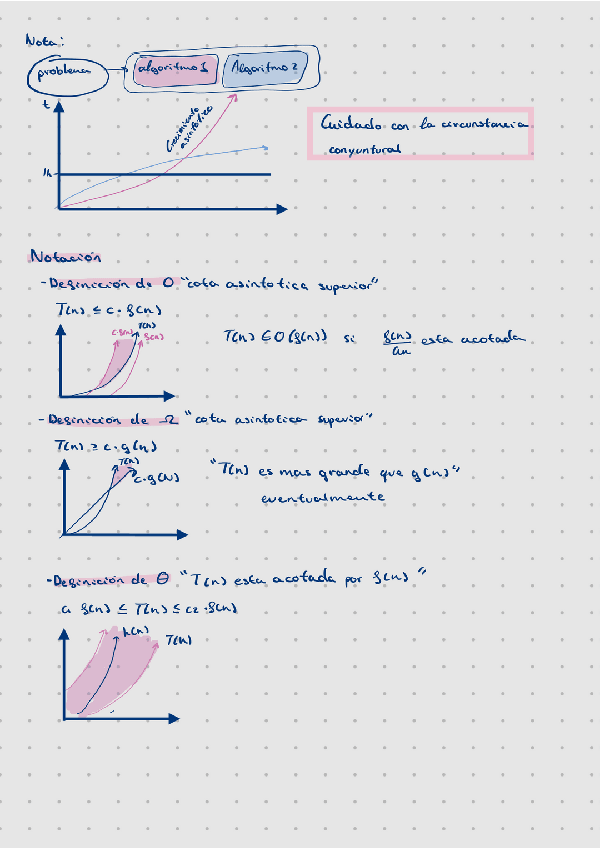 Nota:
problema
algoritmo 1
Algoritmo 2
t
Crecimiento
asintótico
1h
Cuidado con la circunstancia
conyuntural
Notación
- Definición de O "cota asintotica superior"
T(n) ≤ c · f(n)
c·f(n)
T(n)
f(n)
T(n) ∈ O(f(n)) si f(n)/an esta acotada
- Definición de Ω "cota asintotica superior"
T(n) ≥ c · g(n)
T(n)
c·g(n)
"T(n) es mas grande que g(n)"
eventualmente
- Definición de Θ "T(n) esta acotada por f(n)"
c1 f(n) ≤ T(n) ≤ c2 · f(n)
h(n)
T(n)